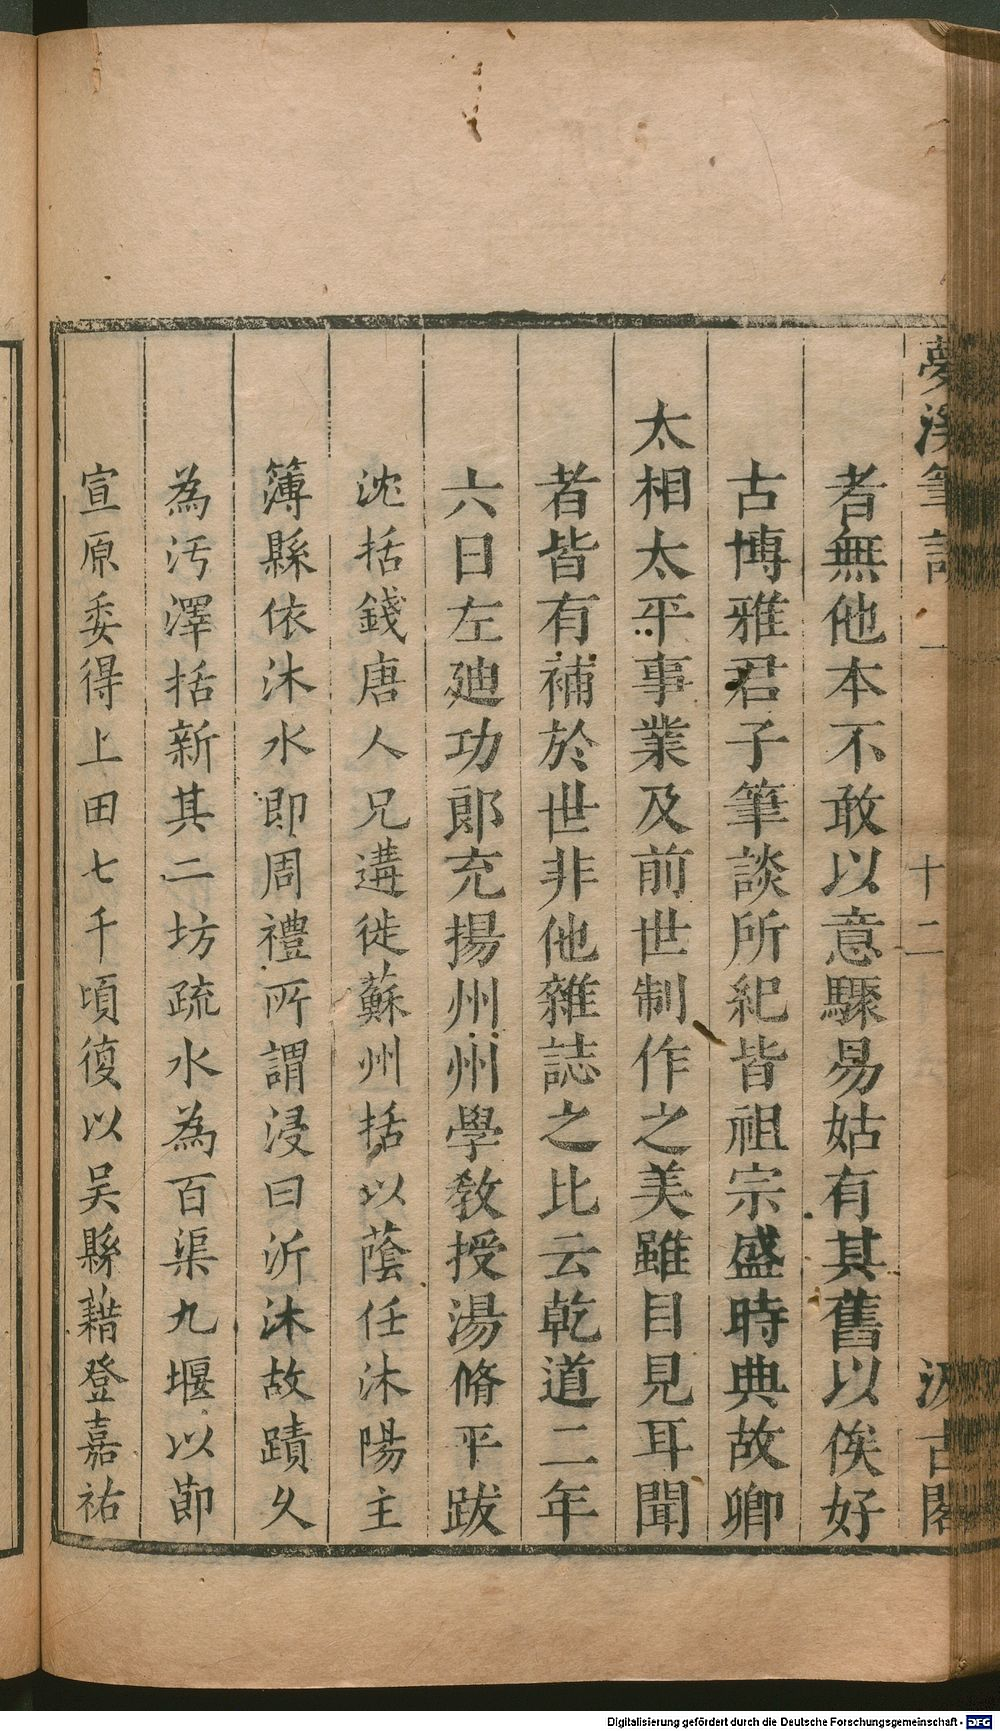 夢溪筆談 十二 汲古閣
者無他本不敢以意驟易姑有其舊以俟好
古博雅君子筆談所紀皆祖宗盛時典故卿
太相太平事業及前世制作之美雖目見耳聞
者皆有補於世非他雜誌之比云乾道二年
六日左廸功郎充揚州州學教授湯脩平跋
沈括錢唐人兄遘徙蘇州括以蔭任沭陽主
簿縣依沭水即周禮所謂浸曰沂沭故蹟久
為汚澤括新其二坊疏水為百渠九堰以節
宣原委得上田七千頃復以吴縣藉登嘉祐
Digitalisierung gefördert durch die Deutsche Forschungsgemeinschaft - DFG